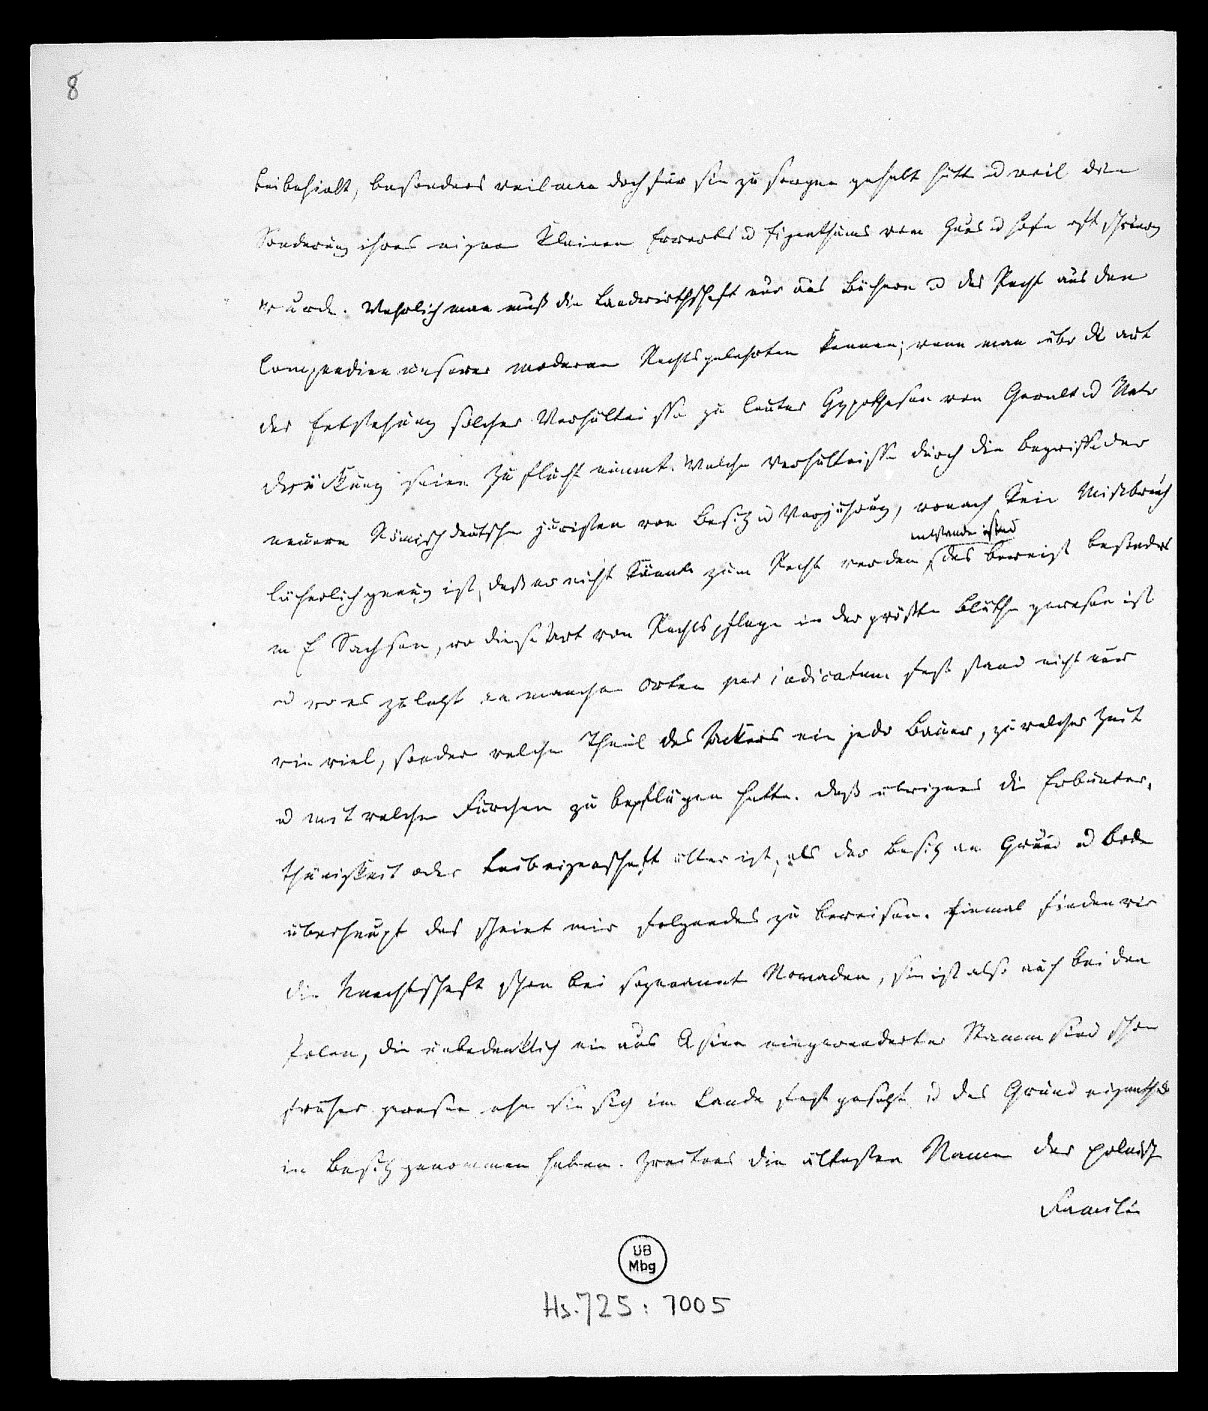 8
beibehielt, besonders weil man doch für sie zu sorgen gehabt hätte u weil die
Sonderung ihres eignen kleinen Erwerbs u Eigenthums von Haus u Hofe oft schwierig
wurde. Wahrlich man muß die Landwirthschaft nur aus Büchern u das Recht aus den
Compendien unserer modernen Rechtsgelehrten kennen, wenn man über die Art
der Entstehung solcher Verhältnisse zu lauter Hypothesen von Gewalt u Unter
drückung seine Zuflucht nimmt. Welche Verhältnisse durch die Begriffe der
neuern Römisch deutschen Juristen von Besitz u Verjährung, wonach kein Misbrauch
lächerlich genug ist, daß er nicht könnte zum Recht werden, entstanden sind
das beweist besonders
Sachsen, wo diese Art von Rechtspflege in der größten Blüthe gewesen ist
u wo es zuletzt an manchen Orten per iudicatum fest stand nicht nur
wie viel, sondern welchen Theil des Ackers ein jeder Bauer, zu welcher Zeit
u mit welchen Furchen zu bepflügen hatte. Daß übrigens die Erbunter-
thänigkeit oder Leibeigenschaft älter ist, als der Besitz an Grund u Boden
überhaupt das scheint mir folgendes zu beweisen. Einmal finden wir
die Knechtschaft schon bei sogenannt Nomaden, sie ist also auch bei den
Polen, die unbedenklich ein aus Asien eingewanderter Stamm sind schon
früher gewesen ehe sie sich im Lande fest gesetzt u das Grundeigenthum
in Besitz genommen haben. Zweitens die ältesten Namen der polnisch
Familie
UB
Mbg
Hs. 725: 1005